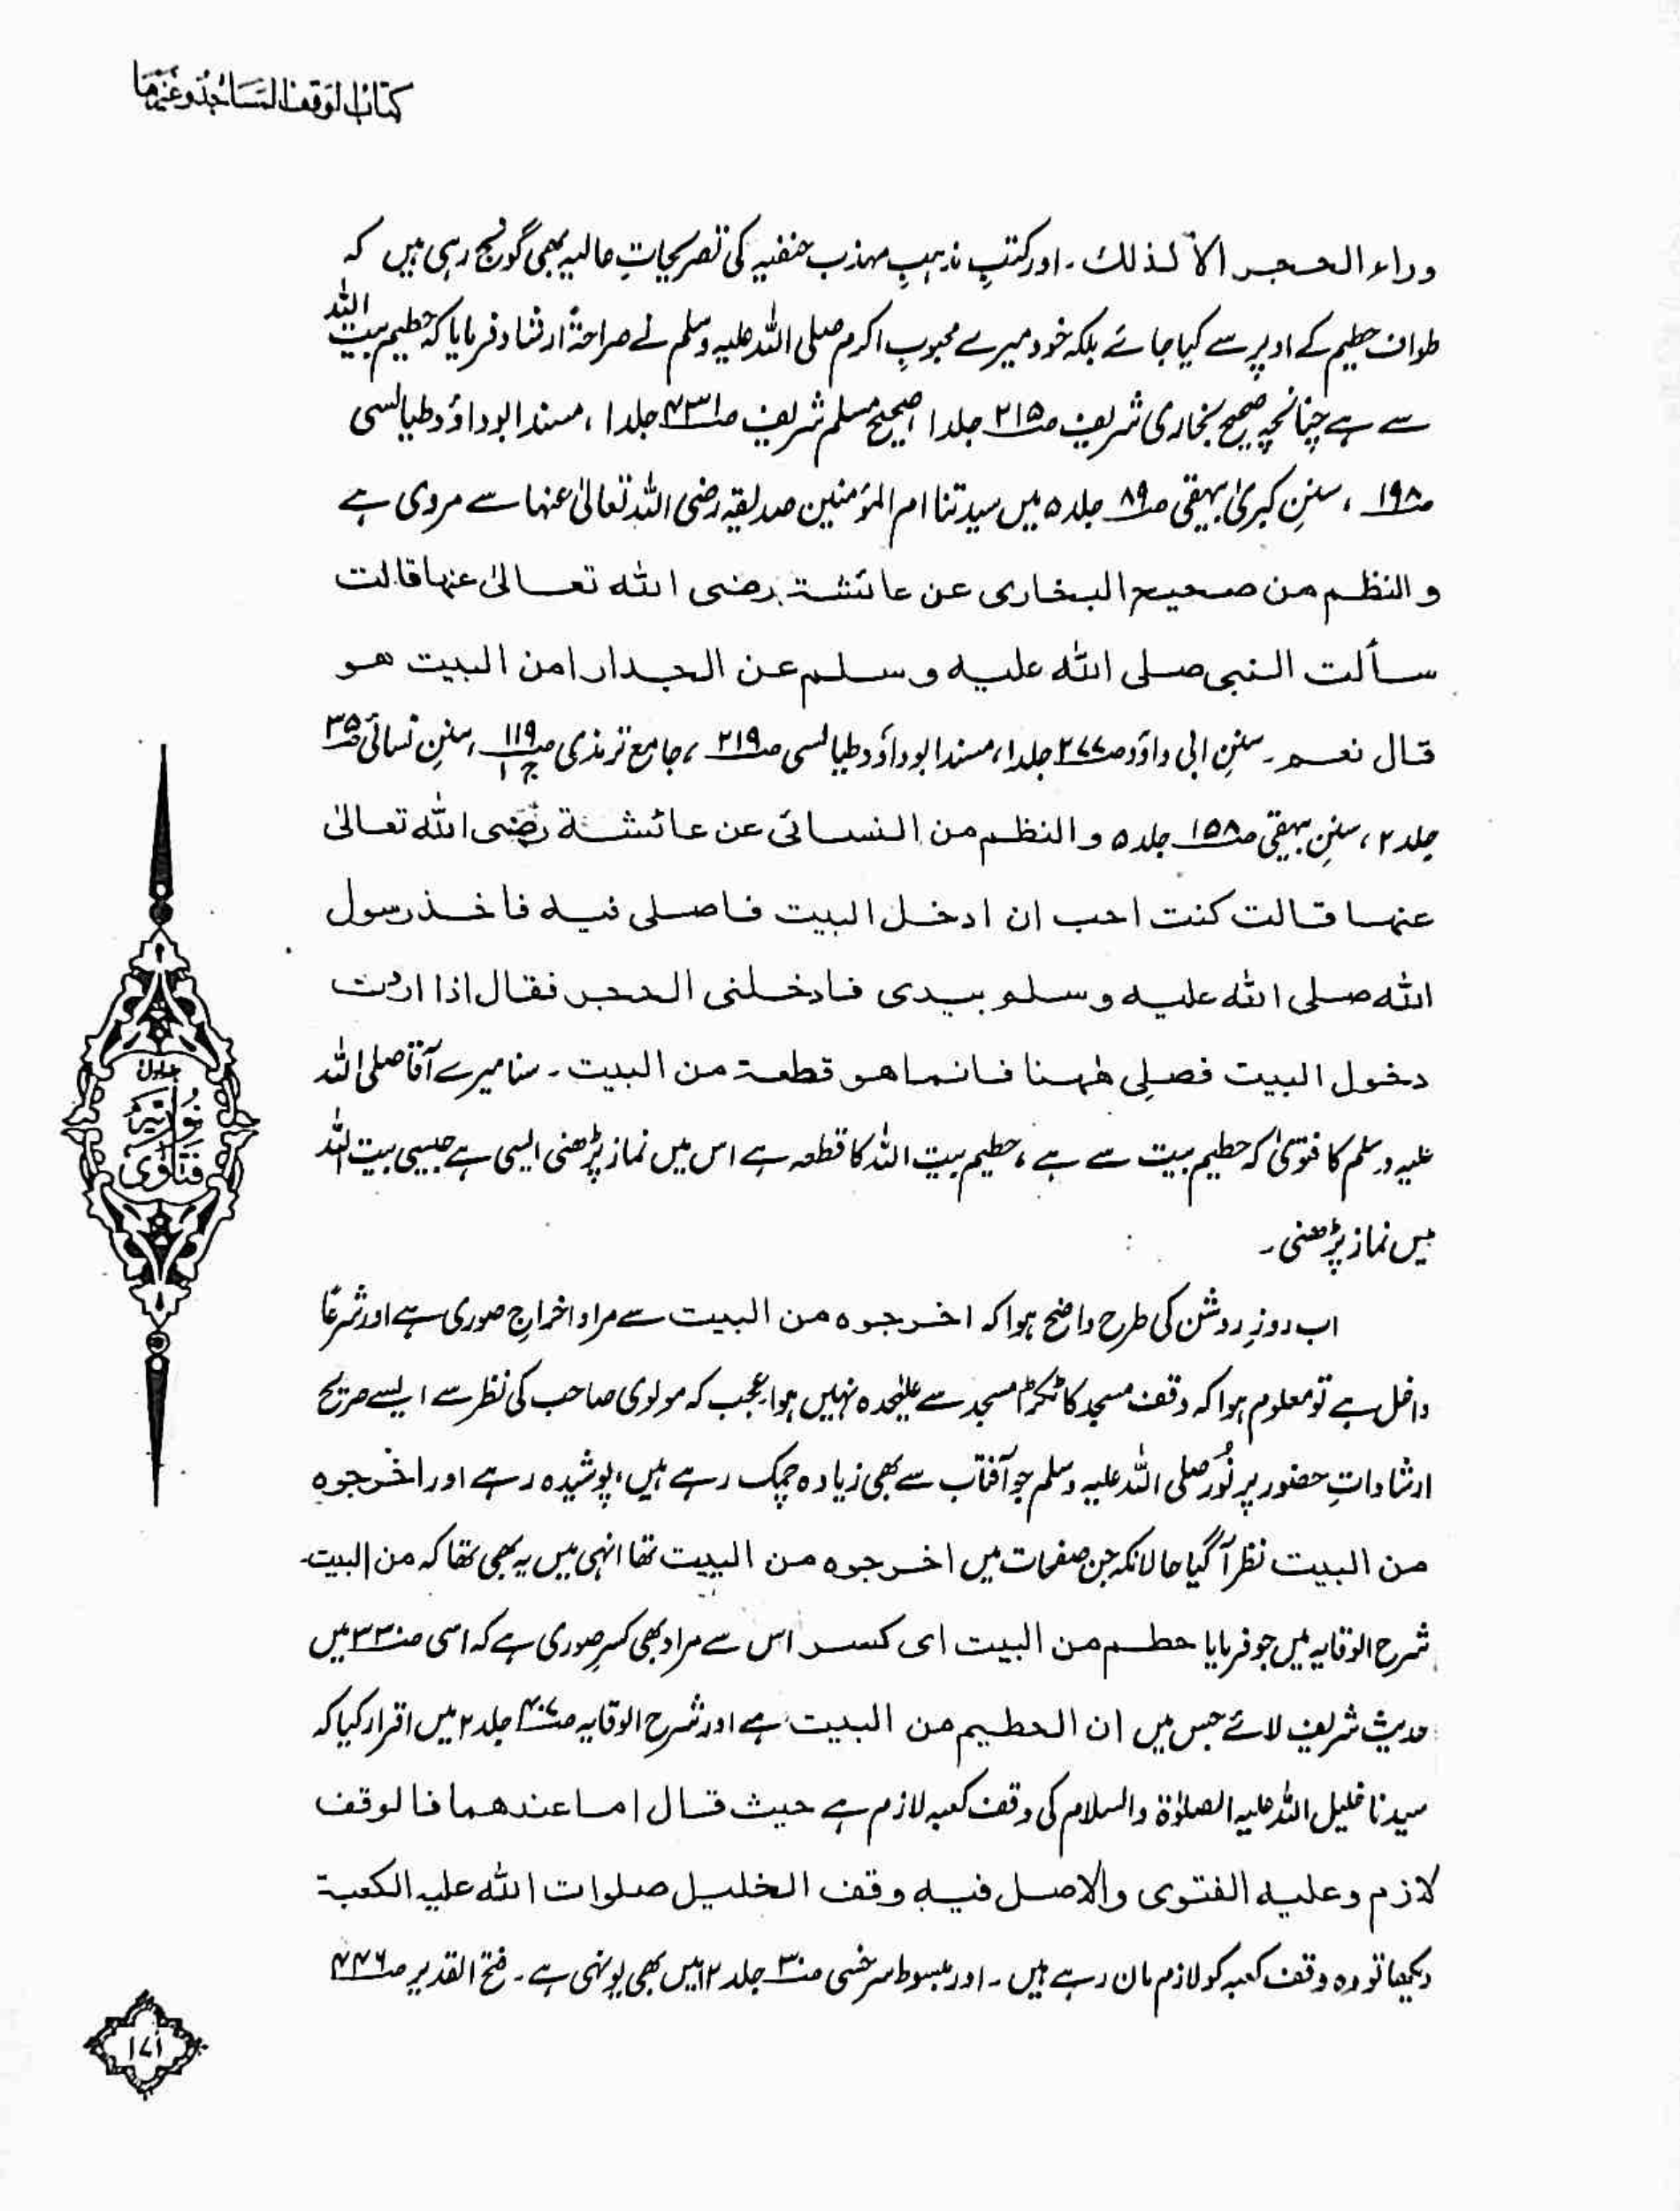 کتاب الوقف المساجد وغیرھا
وراء الحجر الا لذلك۔ اور کتبِ مذہبِ مہذب حنفیہ کی تصریحاتِ عالیہ بھی گونج رہی ہیں کہ
طواف حطیم کے اوپر سے کیا جائے بلکہ خود میرے محبوبِ اکرم صلی اللہ علیہ وسلم نے صراحۃً ارشاد فرمایا کہ حطیم بیت اللہ
سے ہے چنانچہ صحیح بخاری شریف ص۲۱۵ جلد۱ صحیح مسلم شریف ص۴۳۱ جلد۱، مسند ابوداؤد طیالسی
ص۱۹۸، سننِ کبریٰ بیہقی ص۸۹ جلد۵ میں سیدتنا ام المؤمنین صدیقہ رضی اللہ تعالیٰ عنہا سے مروی ہے
والنظم من صحیح البخاری عن عائشۃ رضی اللہ تعالیٰ عنہا قالت
سألت النبی صلی اللہ علیہ وسلم عن الجدار امن البیت ھو
قال نعم۔ سننِ ابی داؤد ص۲۷۷ جلد۱، مسند ابوداؤد طیالسی ص۲۱۹، جامع ترمذی ص۱۱۹ ج۱، سننِ نسائی ص۳۵
جلد۲، سننِ بیہقی ص۱۵۸ جلد۵ والنظم من النسائی عن عائشۃ رضی اللہ تعالیٰ
عنہا قالت کنت احب ان ادخل البیت فاصلی فیہ فاخذ رسول
اللہ صلی اللہ علیہ وسلم بیدی فادخلنی الحجر فقال اذا اردت
دخول البیت فصلِی ھٰہنا فانما ھو قطعۃ من البیت۔ سنا میرے آقا صلی اللہ
علیہ وسلم کا فتویٰ کہ حطیم بیت سے ہے، حطیم بیت اللہ کا قطعہ ہے اس میں نماز پڑھنی ایسی ہے جیسی بیت اللہ
میں نماز پڑھنی۔
اب روزِ روشن کی طرح واضح ہوا کہ اخرجوہ من البیت سے مراد اخراجِ صوری ہے اور شرعًا
داخل ہے تو معلوم ہوا کہ وقف مسجد کا ٹکڑا مسجد سے علیٰحدہ نہیں ہوا۔ عجب کہ مولوی صاحب کی نظر سے ایسے صریح
ارشاداتِ حضور پر نُور صلی اللہ علیہ وسلم جو آفتاب سے بھی زیادہ چمک رہے ہیں، پوشیدہ رہے اور اخرجوہ
من البیت نظر آگیا حالانکہ جن صفحات میں اخرجوہ من البیت تھا انہی میں یہ بھی تھا کہ من البیت۔
شرح الوقایہ میں جو فرمایا حطم من البیت ای کسر اس سے مراد بھی کسرِ صوری ہے کہ اسی ص۳۳۰ میں
حدیث شریف لائے جس میں ان الحطیم من البیت ہے اور شرح الوقایہ ص۴۰۷ جلد۲ میں اقرار کیا کہ
سیدنا خلیل اللہ علیہ الصلوٰۃ والسلام کی وقف کعبہ لازم ہے حیث قال اما عندھما فالوقف
لازم وعلیہ الفتوی والاصل فیہ وقف الخلیل صلوات اللہ علیہ الکعبۃ
دیکھا تو وہ وقف کعبہ کو لازم مان رہے ہیں۔ اور مبسوط سرخسی ص۳۰ جلد ۱۲ میں بھی یونہی ہے۔ فتح القدیر ص۴۴۶
جلد اول
نوریہ
فتاوٰی
۱۷۱